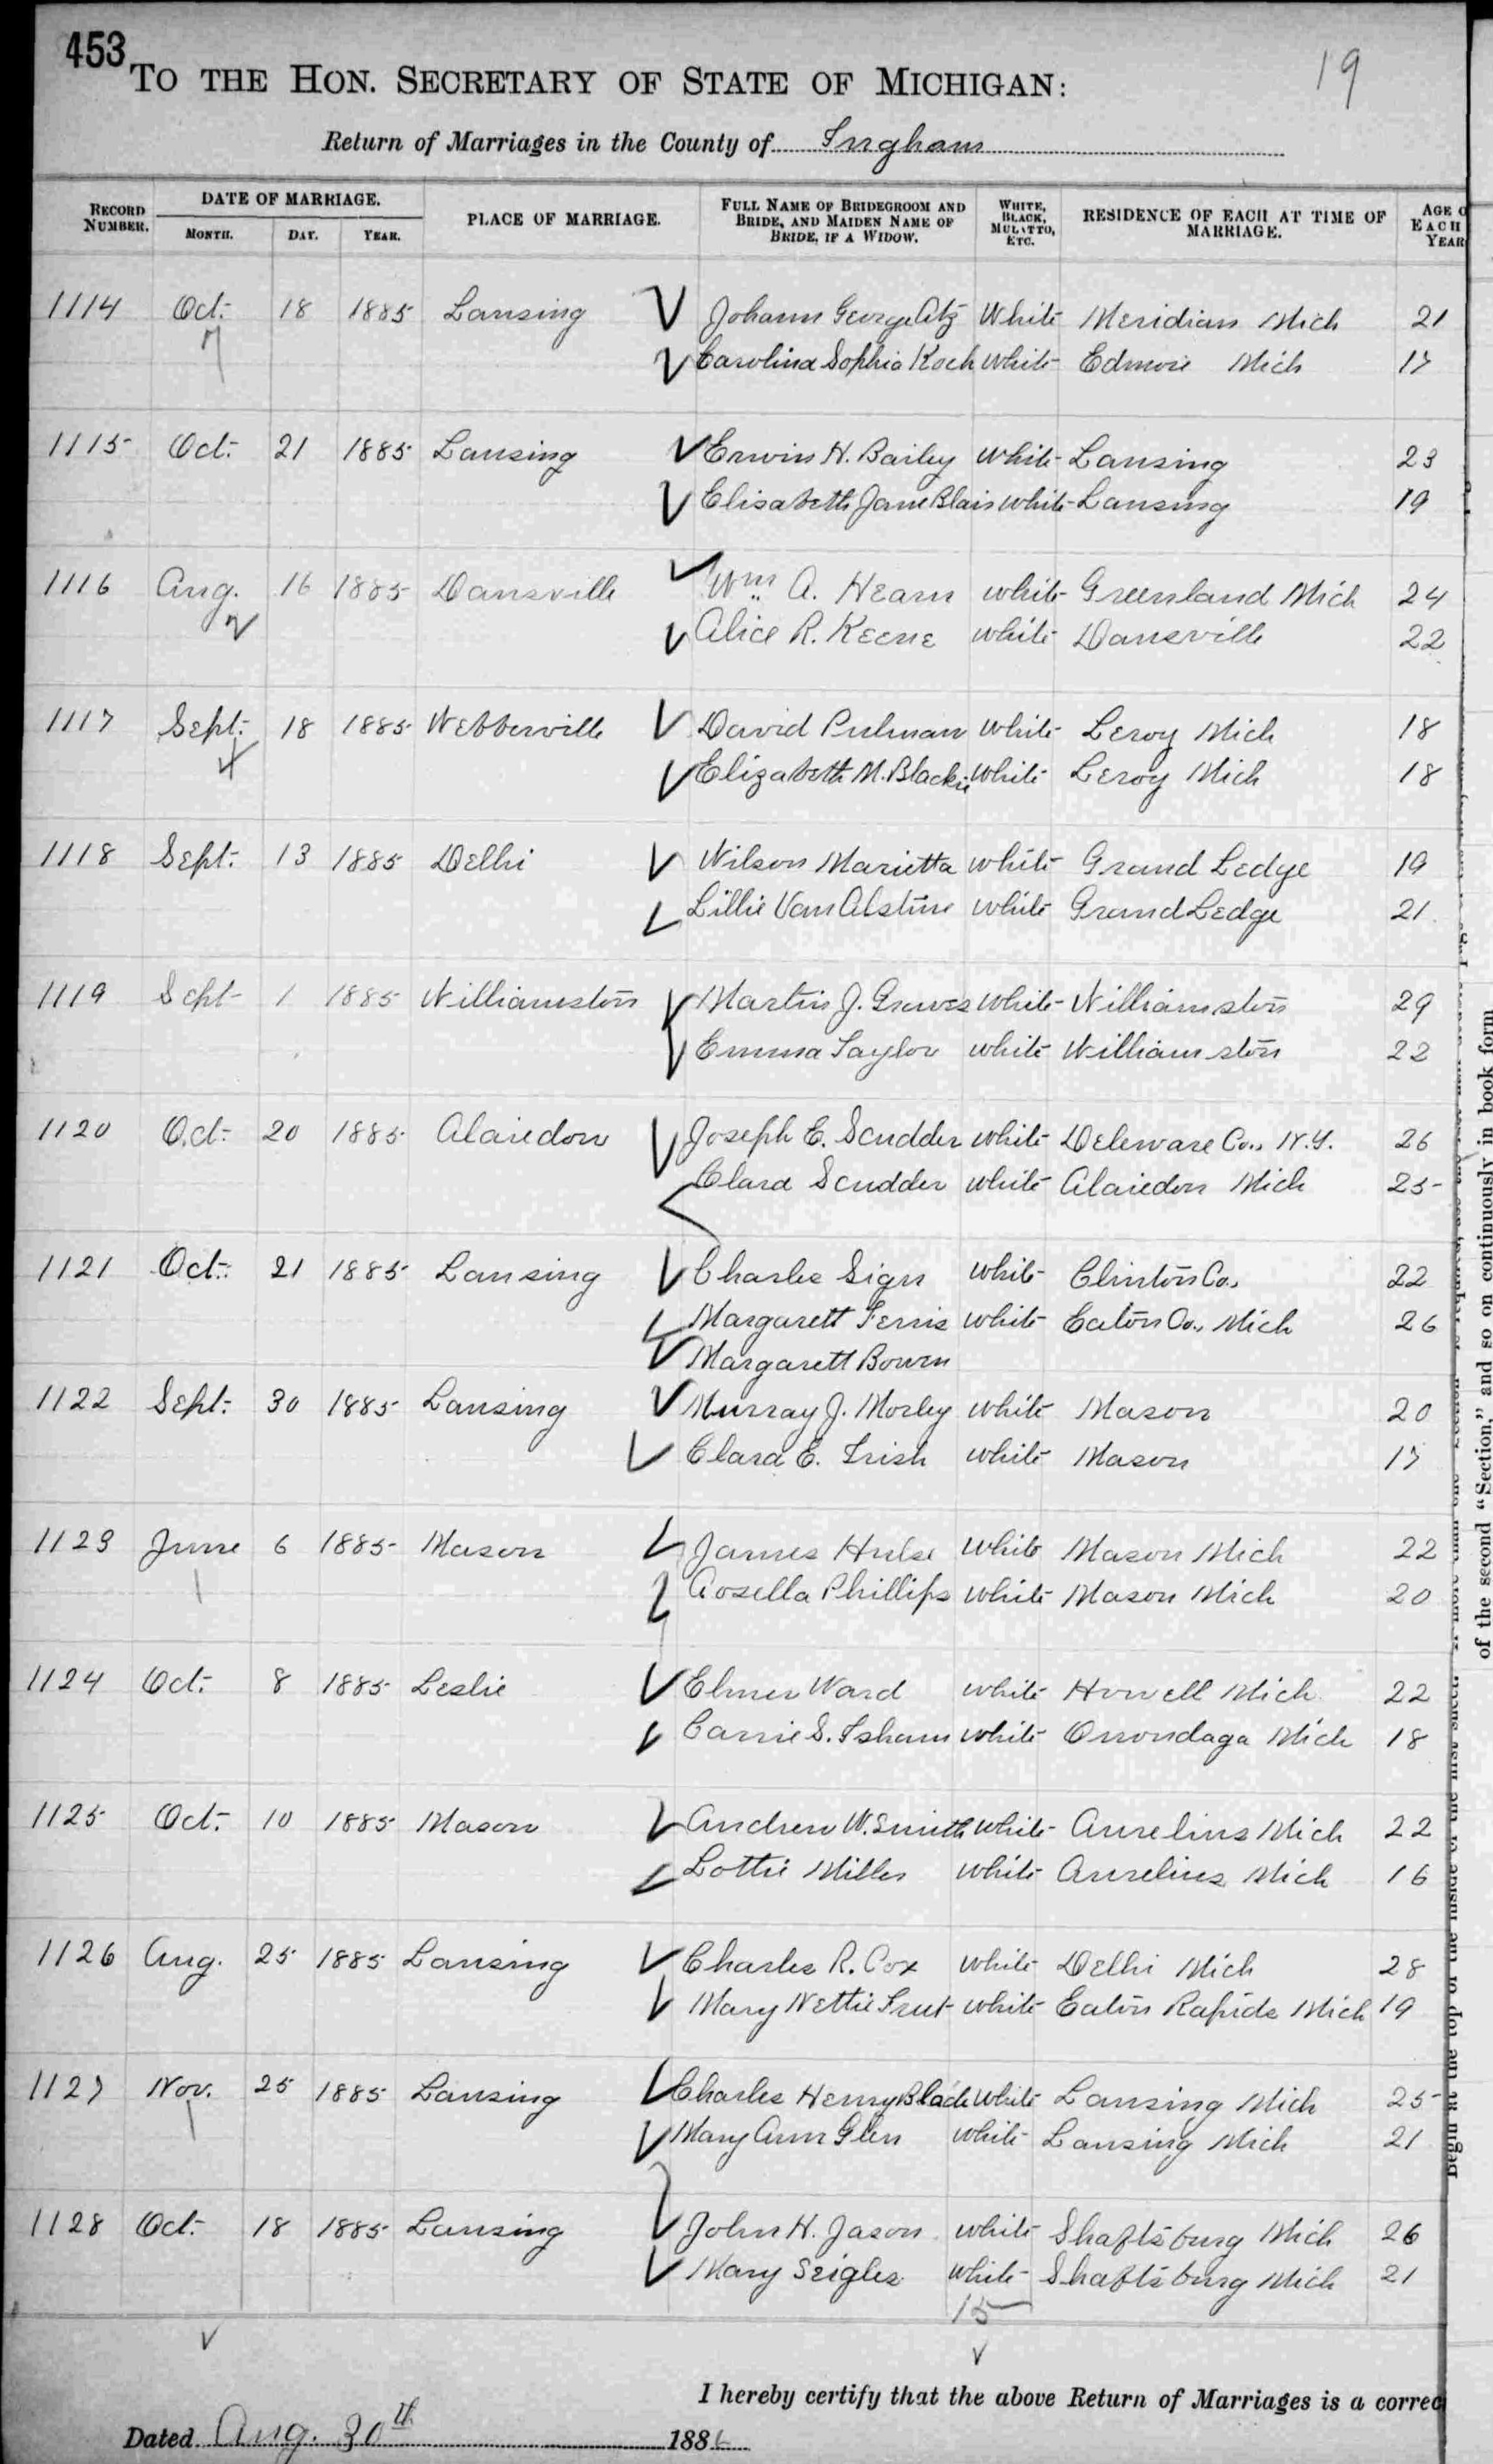 453
19
TO THE HON. SECRETARY OF STATE OF MICHIGAN:
Return of Marriages in the County of Ingham
RECORD NUMBER. DATE OF MARRIAGE. MONTH. DAY. YEAR. PLACE OF MARRIAGE. FULL NAME OF BRIDEGROOM AND BRIDE, AND MAIDEN NAME OF BRIDE, IF A WIDOW. WHITE, BLACK, MULATTO, ETC. RESIDENCE OF EACH AT TIME OF MARRIAGE. AGE O EACH YEAR
1114 Oct. 18 1885 Lansing Johann George Atz White Meridian Mich 21
7 Carolina Sophia Koch white Edmore Mich 17
1115 Oct. 21 1885 Lansing Erwin H. Bailey white Lansing 23
Elisabeth Jane Blair white Lansing 19
1116 Aug. 16 1885 Dansville Wm. A. Hearn white Greenland Mich 24
2 Alice R. Keene white Dansville 22
1117 Sept. 18 1885 Webberville David Pulman white Leroy Mich 18
4 Elizabeth M. Blackie white Leroy Mich 18
1118 Sept. 13 1885 Delhi Wilson Marietta white Grand Ledge 19
Lillie Van Alstine white Grand Ledge 21
1119 Sept 1 1885 Williamston Martin J. Graves white Williamston 29
Emma Taylor white Williamston 22
1120 Oct. 20 1885 Alaiedon Joseph E. Scudder white Deleware Co., N.Y. 26
Clara Scudder white Alaiedon Mich 25
1121 Oct. 21 1885 Lansing Charles Sign white Clinton Co., 22
Margarett Ferris white Eaton Co., Mich 26
Margarett Bowen
1122 Sept. 30 1885 Lansing Murray J. Morley white Mason 20
Clara E. Irish white Mason 17
1123 June 6 1885 Mason James Hulse white Mason Mich 22
1 Rosella Phillips white Mason Mich 20
1124 Oct. 8 1885 Leslie Elmer Ward white Howell Mich 22
Carrie S. Isham white Onondaga Mich 18
1125 Oct. 10 1885 Mason Andrew W. Smith white Aurelius Mich 22
Lottie Miller white Aurelius Mich 16
1126 Aug. 25 1885 Lansing Charles R. Cox white Delhi Mich 28
Mary Nettie white Eaton Rapids Mich 19
1127 Nov. 25 1885 Lansing Charles Henry Blade white Lansing Mich 25
1 Mary Ann Glen white Lansing Mich 21
1128 Oct. 18 1885 Lansing John H. Jason white Shaftsburg Mich 26
Mary Seigler white Shaftsburg Mich 21
15
I hereby certify that the above Return of Marriages is a correc
Dated Aug. 30th 1886
of the second "Section," and so on continuously in book form